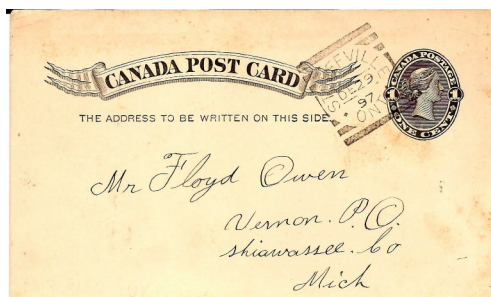 CANADA POST CARD
THE ADDRESS TO BE WRITTEN ON THIS SIDE
DE 29
97
ONT
CANADA POSTAGE
1 1
ONE CENT
Mr Floyd Owen
Vernon. P.O.
Shiawassee. Co
Mich